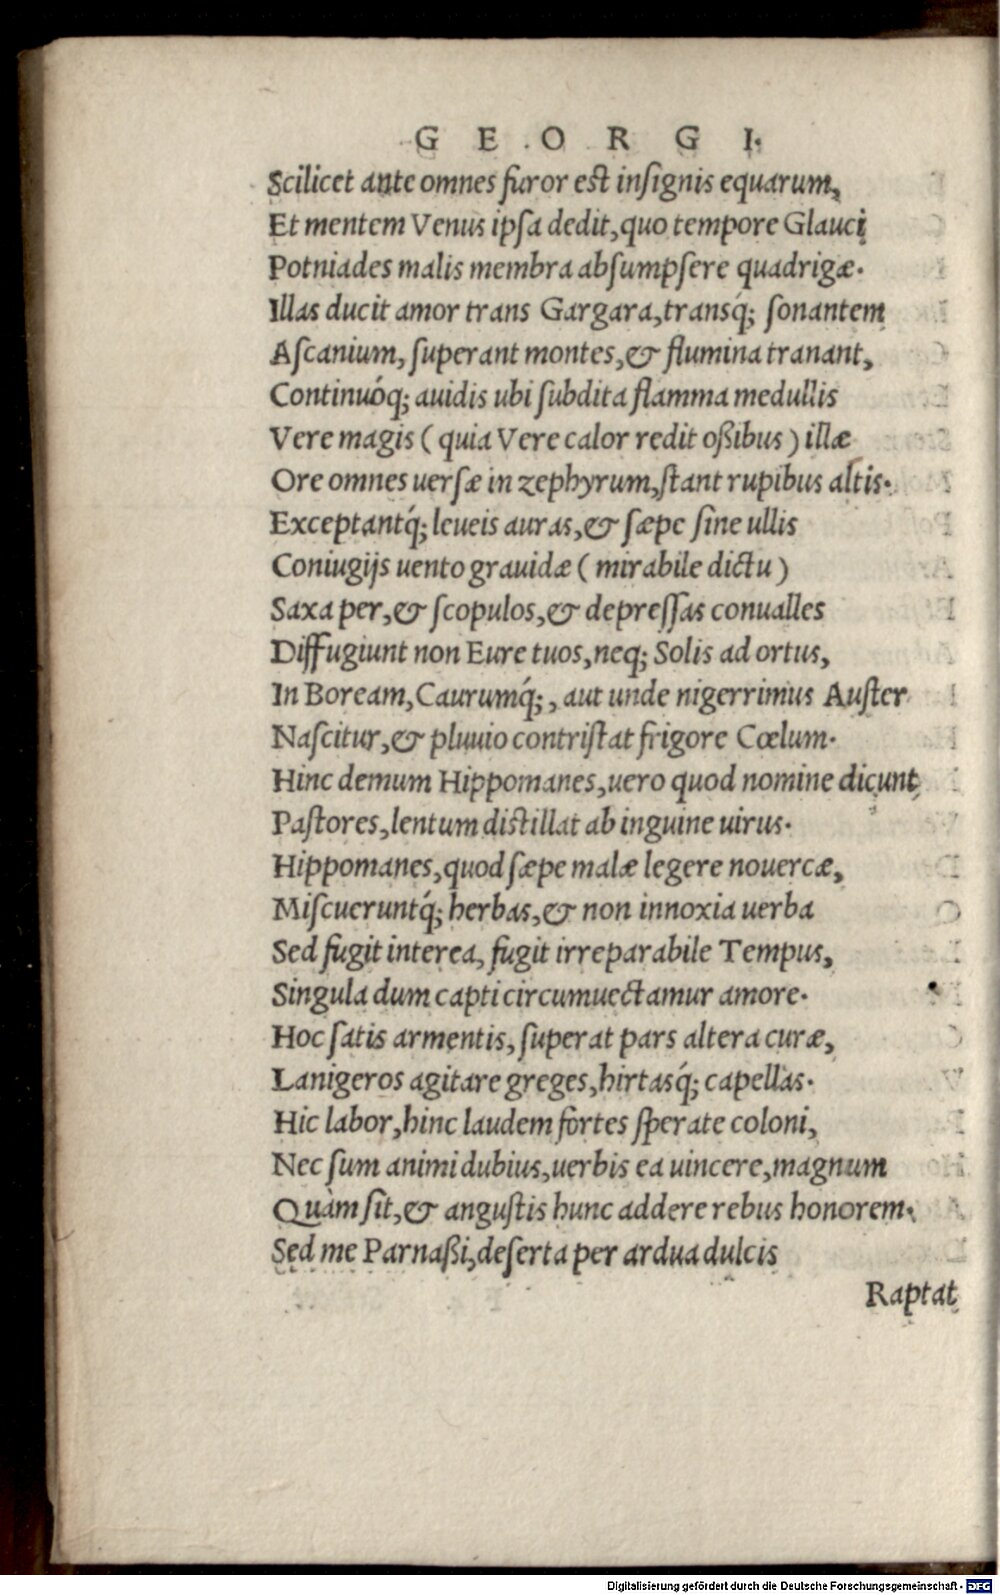 G E O R G I.
Scilicet ante omnes furor est inſignis equarum,
Et mentem Venus ipſa dedit, quo tempore Glauci
Potniades malis membra abſumpſere quadrigæ.
Illas ducit amor trans Gargara, transq́; ſonantem
Aſcanium, ſuperant montes, & flumina tranant,
Continuóq; auidis ubi ſubdita flamma medullis
Vere magis (quia Vere calor redit oßibus) illæ
Ore omnes uerſæ in zephyrum, ſtant rupibus altis.
Exceptantq́; leueis auras, & ſæpe ſine ullis
Coniugijs uento grauidæ (mirabile dictu)
Saxa per, & ſcopulos, & depreſſas conualles
Diffugiunt non Eure tuos, neq; Solis ad ortus,
In Boream, Caurumq́;, aut unde nigerrimus Auſter
Naſcitur, & pluuio contriſtat frigore Cœlum.
Hinc demum Hippomanes, uero quod nomine dicunt
Paſtores, lentum diſtillat ab inguine uirus.
Hippomanes, quod ſæpe malæ legere nouercæ,
Miſcueruntq́; herbas, & non innoxia uerba
Sed fugit interea, fugit irreparabile Tempus,
Singula dum capti circumuectamur amore.
Hoc ſatis armentis, ſuperat pars altera curæ,
Lanigeros agitare greges, hirtasq́; capellas.
Hic labor, hinc laudem fortes ſperate coloni,
Nec ſum animi dubius, uerbis ea uincere, magnum
Quàm ſit, & anguſtis hunc addere rebus honorem.
Sed me Parnaßi, deſerta per ardua dulcis
Raptat
Digitalisierung gefördert durch die Deutsche Forschungsgemeinschaft - DFG